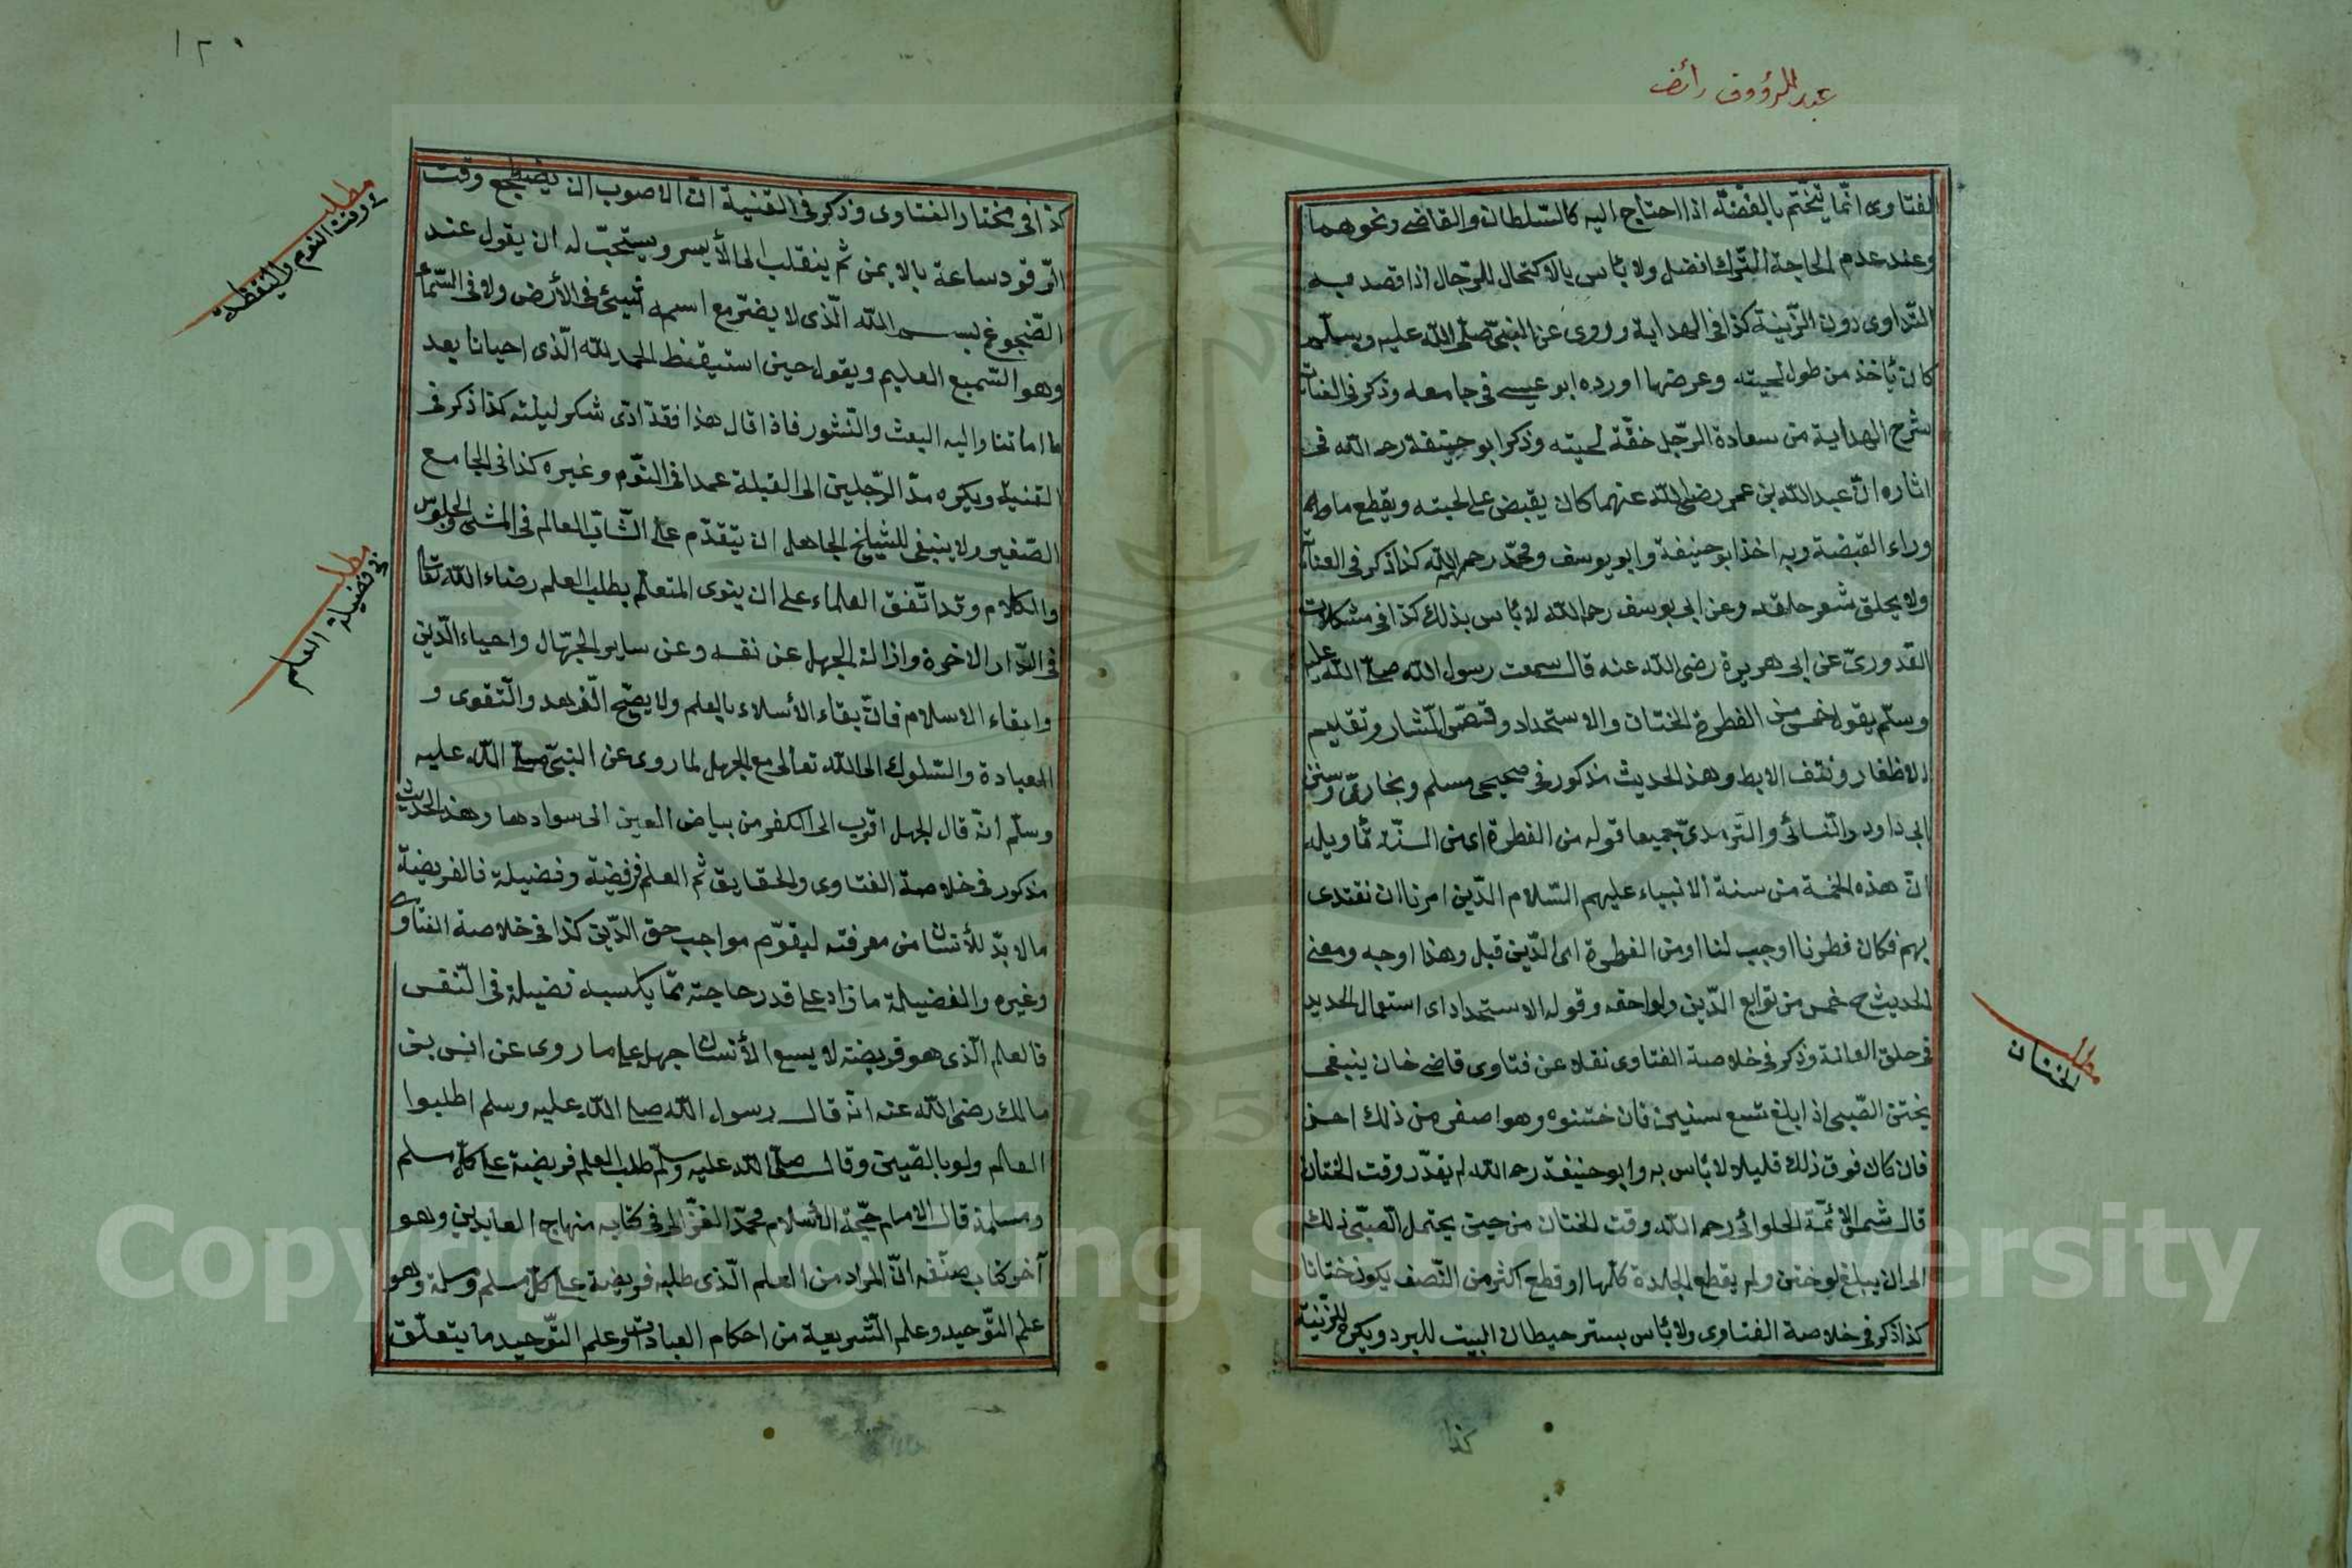 عبد الرؤوف رائض
الفتاوى انّما يتختّم بالفضّة اذا احتاج اليه كالسّلطان والقاضى ونحوهما
وعند عدم الحاجة التّرك افضل ولا بأس بالاكتحال للرّجال اذا قصد به
التّداوى دون الزّينة كذا فى الهداية وروى عن النّبىّ صلّى اللّه عليه وسلّم
كان يأخذ من طول لحيته وعرضها اورده ابو عيسى فى جامعه وذكر فى
شرح الهداية من سعادة الرّجل خفّة لحيته وذكر ابو حنيفة رحمه اللّه فى
اثاره انّ عبد اللّه بن عمر رضى اللّه عنهما كان يقبض على لحيته ويقطع ما
وراء القبضة وبه اخذ ابو حنيفة وابو يوسف ومحمّد رحمهم اللّه كذا ذكر فى
ولا يحلق شعر حلقه وعن ابى يوسف رحمه اللّه لا بأس بذلك كذا فى مشكلات
القدورىّ عن ابى هريرة رضى اللّه عنه قال سمعت رسول اللّه صلى اللّه عليه
وسلّم يقول خمس من الفطرة الختان والاستحداد وقصّ الشّارب وتقليم
الاظفار ونتف الابط وهذا الحديث مذكور فى صحيحى مسلم وبخارىّ وسنن
ابى داود والنّسائى والتّرمدىّ جميعا قوله من الفطرة اى من السنّة تأويله
انّ هذه الخمسة من سنة الانبياء عليهم السّلام الّذين امرنا ان نقتدى
بهم فكان فطرنا اوجب لنا او من الفطرة اى الدّين قبل وهذا اوجه ومعنى
الحديث ح خمس من توابع الدّين ولواحقه وقوله الاستحداد اى استعمال الحديد
فى حلق العانة وذكر فى خلاصة الفتاوى نقلا عن فتاوى قاضى خان ينبغى
يختن الصّبى اذا بلغ تسع سنين فان ختنوه وهو اصغر من ذلك احسن
فان كان فوق ذلك قليلا لا بأس به وابو حنيفة رحمه اللّه لم يقدّر وقت الختان
قال شمس الائمّة الحلوائى رحمه اللّه وقت الختان من حين يحتمل الصّبى ذلك
الى ان يبلغ لو ختن ولم يقطع الجلدة كلّها او قطع اكثر من النّصف يكون ختانا
كذا ذكر فى خلاصة الفتاوى ولا بأس بستر حيطان البيت للبرد ويكره للزّينة
كذا
مطلب
الختان
١٢٠
كذا فى مختار الفتاوى وذكر فى القنية انّ الاصوب ان يضطجع وقت
الرّقود ساعة بالايمن ثم ينقلب الى الأيسر ويستحبّ له ان يقول عند
الضّجوع بسم اللّه الّذى لا يضرّ مع اسمه شيئ فى الأرض ولا فى السّماء
وهو السّميع العليم ويقول حين استيقظ الحمد للّه الّذى احيانا بعد
ما اماتنا واليه البعث والنّشور فاذا قال هذا فقد ادّى شكر ليلته كذا ذكر فى
القنية ويكره مدّ الرّجلين الى القبلة عمدا فى النّوم وغيره كذا فى الجامع
الصّغير ولا ينبغى للشيخ الجاهل ان يتقدّم على الشّابّ العالم فى المشى والجلوس
والكلام وقد اتّفق العلماء على ان ينوى المتعلّم بطلب العلم رضاء اللّه تعا
فى الدّار الاخرة وازالة الجهل عن نفسه وعن ساير الجهّال واحياء الدّين
وابقاء الاسلام فانّ بقاء الأسلام بالعلم ولا يصّح الزّهد والتّقوى و
العبادة والسّلوك الى اللّه تعالى مع الجهل لما روى عن النّبىّ صلى اللّه عليه
وسلّم انّه قال الجهل اقرب الى الكفر من بياض العين الى سوادها وهذا الحديث
مذكور فى خلاصة الفتاوى والحقايق ثم العلم فريضة وفضيلة فالفريضة
ما لا بدّ للأنسان من معرفته ليقوّم مواجب حق الدّين كذا فى خلاصة الفتاوى
وغيره والفضيلة ما زاد على قدر حاجته ممّا يكسبه فضيلة فى النّفس
فالعلم الّذى هو فريضة لا يسع الأنسان جهله على ما روى عن انس بن
مالك رضى اللّه عنه انّه قال رسول اللّه صلى اللّه عليه وسلم اطلبوا
العلم ولو بالصّين وقال صلّى اللّه عليه وسلّم طلب العلم فريضة على كلّ مسلم
ومسلمة قال الامام حجّة الأسلام محمّد الغزّالى فى كتابه منهاج العابدين وهو
آخر كتاب صنّفه انّ المراد من العلم الّذى طلبه فريضة على كلّ مسلم ومسلمة وهو
علم التّوحيد وعلم الشّريعة من احكام العبادات وعلم التّوحيد ما يتعلّق
مطلب
فى وقت النوم واليقظة
مطلب
فى فضيلة العلم
Copyright © King Saud University
1957